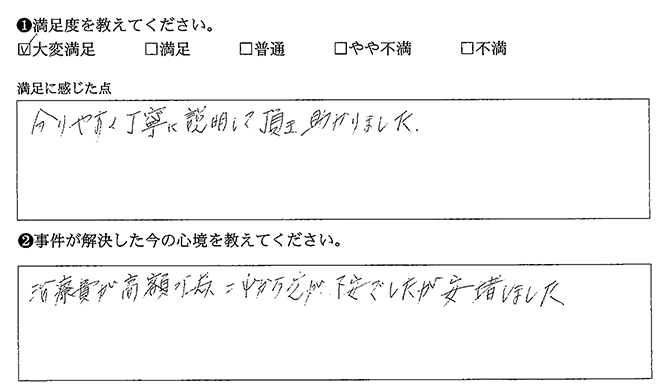 ❶満足度を教えてください。
☑大変満足 □満足 □普通 □やや不満 □不満
満足に感じた点
分りやすく丁寧に説明して頂き助かりました.
❷事件が解決した今の心境を教えてください。
治療費が高額な為 不安でしたが安堵しました